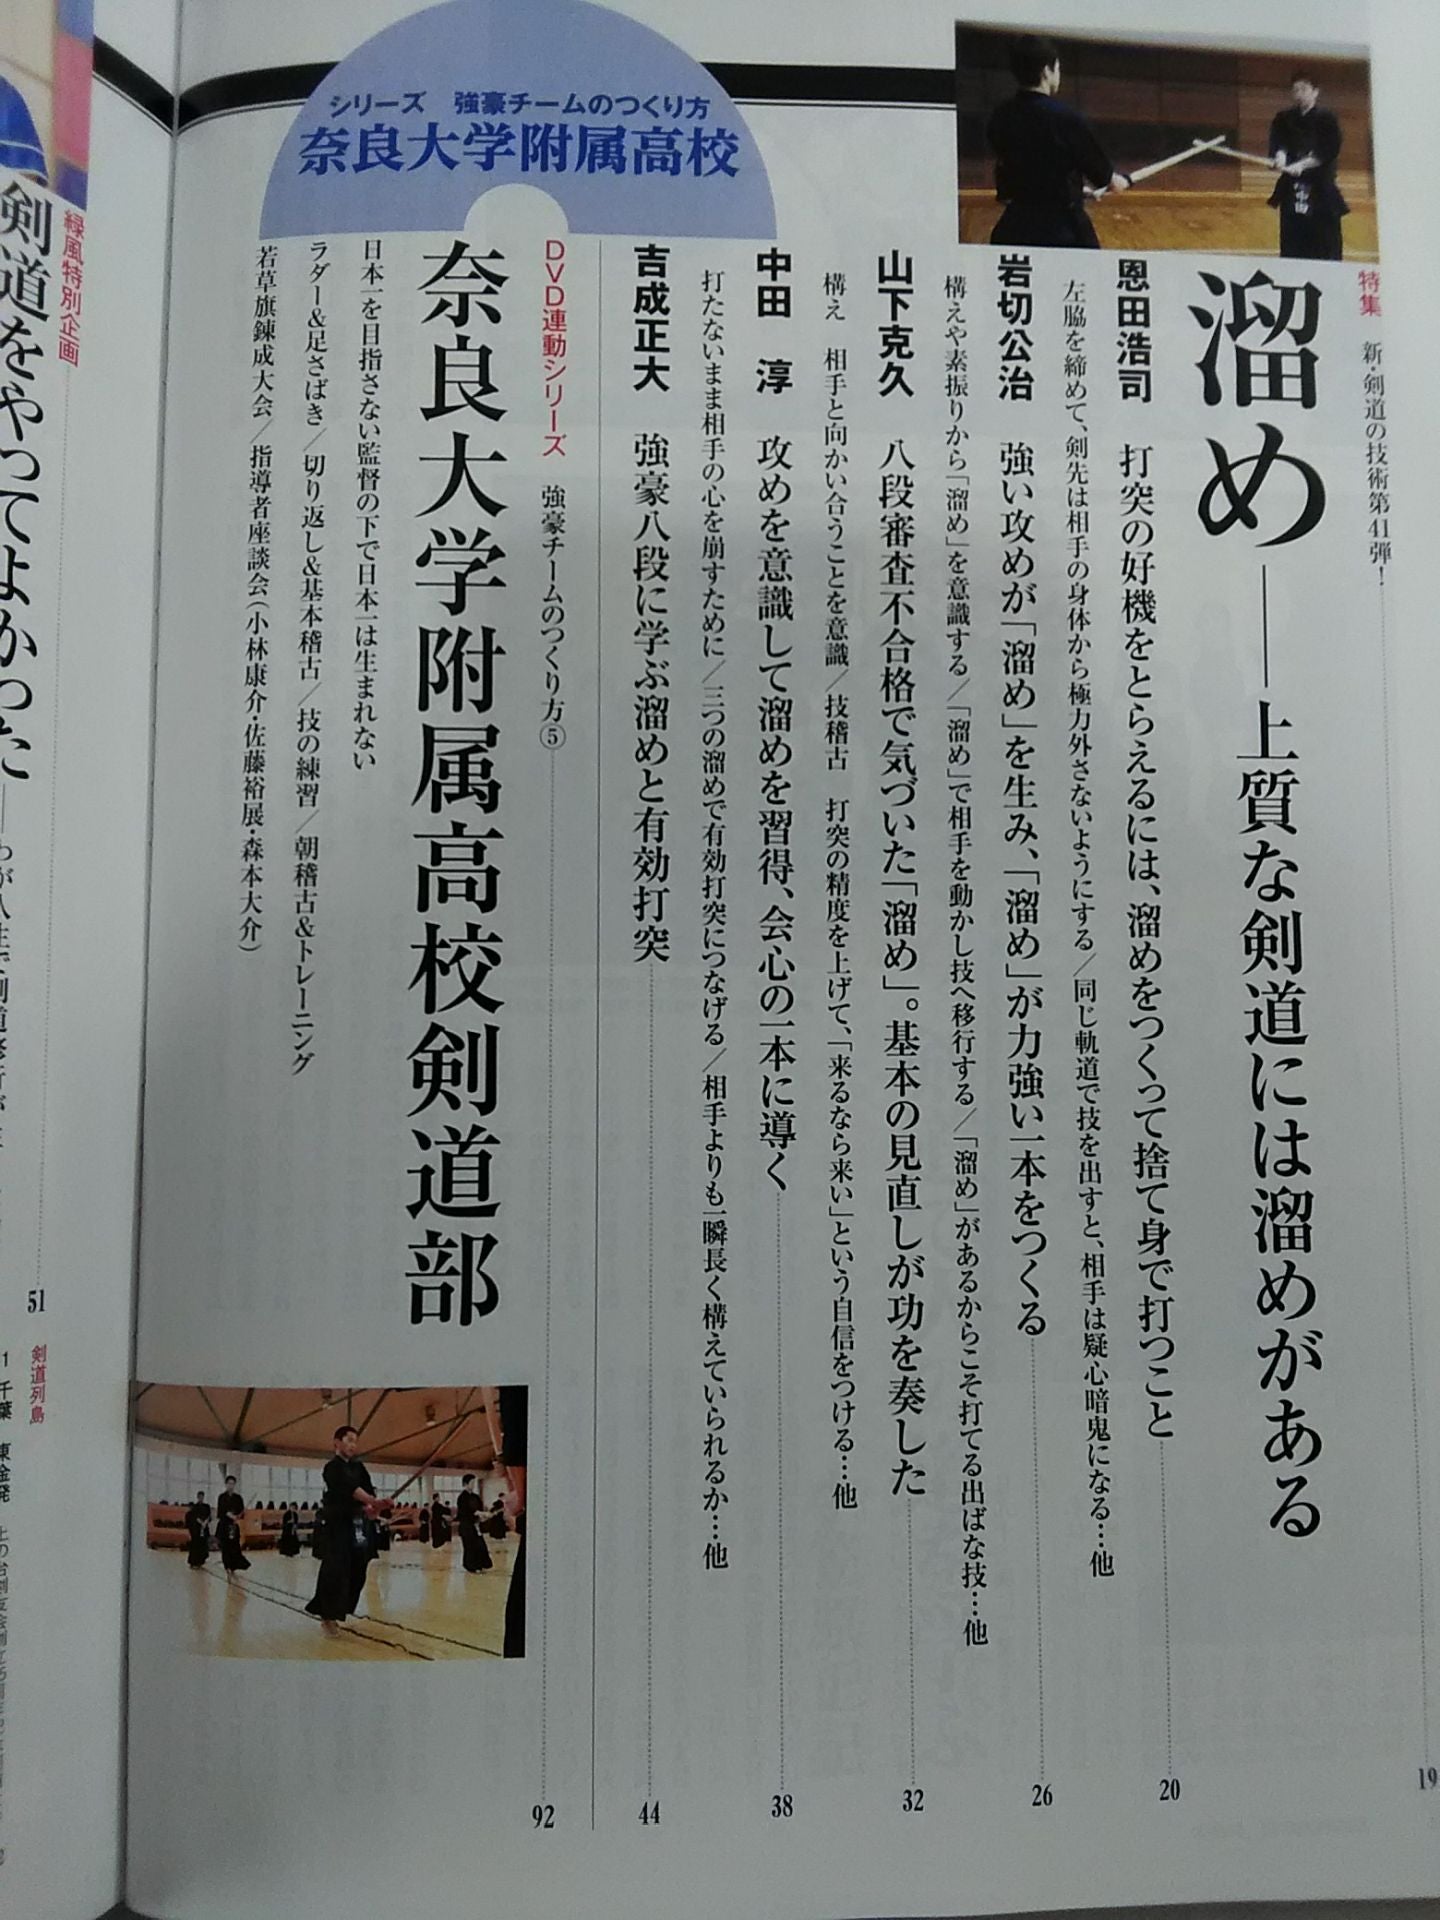 特集 新・剣道の技術第41弾! 19
溜め——上質な剣道には溜めがある
恩田浩司 打突の好機をとらえるには、溜めをつくって捨て身で打つこと 20
左脇を締めて、剣先は相手の身体から極力外さないようにする/同じ軌道で技を出すと、相手は疑心暗鬼になる…他
岩切公治 強い攻めが「溜め」を生み、「溜め」が力強い一本をつくる 26
構えや素振りから「溜め」を意識する/「溜め」で相手を動かし技へ移行する/「溜め」があるからこそ打てる出ばな技…他
山下克久 八段審査不合格で気づいた「溜め」。基本の見直しが功を奏した 32
構え 相手と向かい合うことを意識/技稽古 打突の精度を上げて、「来るなら来い」という自信をつける…他
中田 淳 攻めを意識して溜めを習得、会心の一本に導く 38
打たないまま相手の心を崩すために/三つの溜めで有効打突につなげる/相手よりも一瞬長く構えていられるか…他
吉成正大 強豪八段に学ぶ溜めと有効打突 44
シリーズ 強豪チームのつくり方
奈良大学附属高校
DVD連動シリーズ 強豪チームのつくり方⑤ 92
奈良大学附属高校剣道部
日本一を目指さない監督の下で日本一は生まれない
ラダー&足さばき/切り返し&基本稽古/技の練習/朝稽古&トレーニング
若草旗錬成大会/指導者座談会(小林康介・佐藤裕展・森本大介)
緑風特別企画 51
剣道をやってよかった
剣道列島
1 千葉 東金発